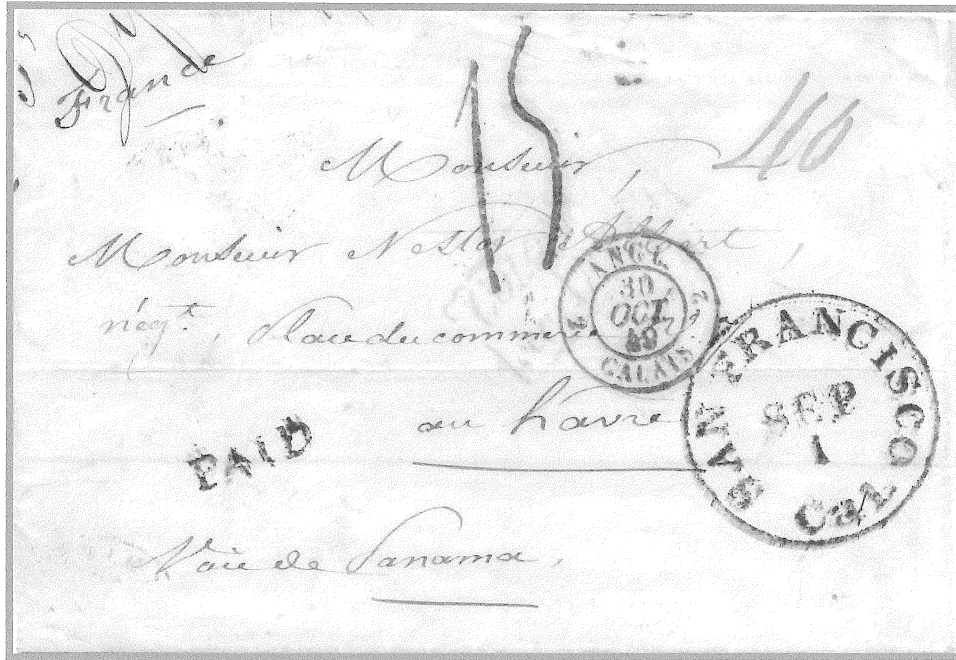 France
15
40
Monsieur,
Monsieur Nestor
négt, Place du commerce
au havre
Voie de Panama,
PAID
ANGL.
30
OCT
49
CALAIS
SAN FRANCISCO Cal
SEP
1